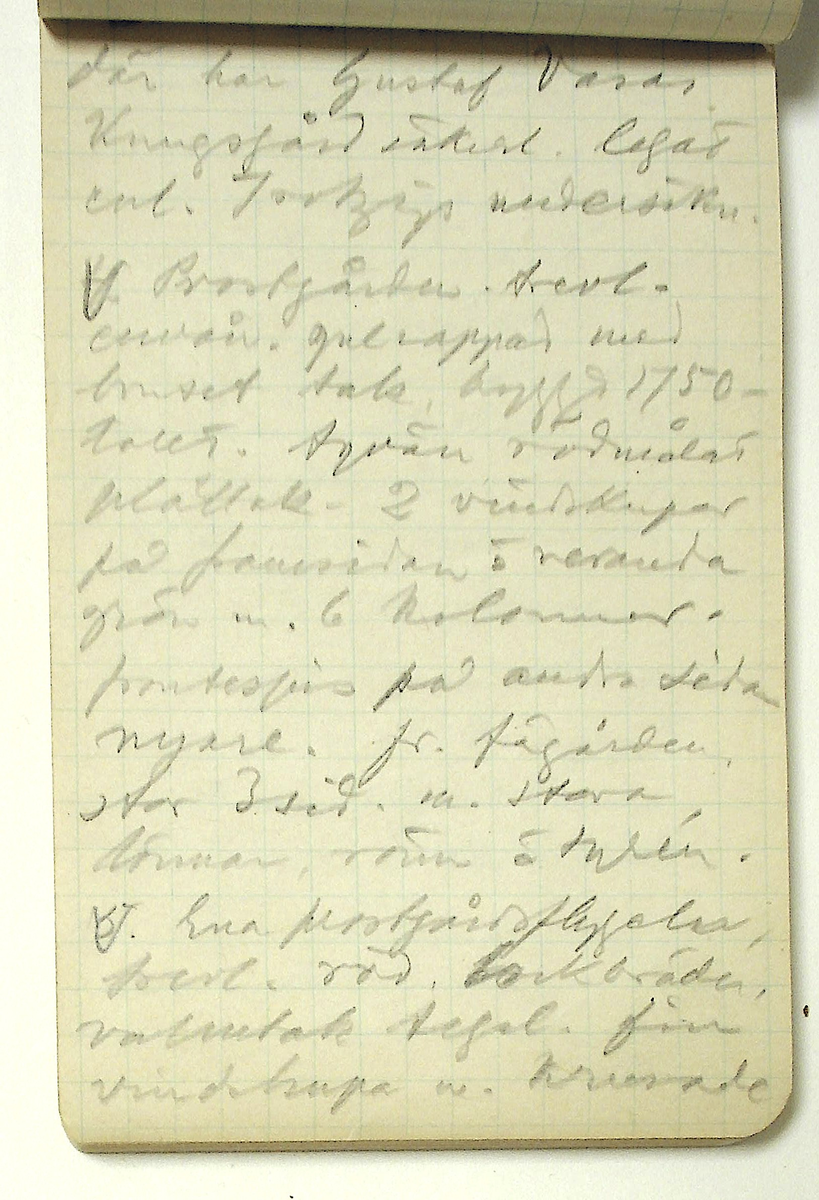 där har Gustaf Vasas
Kungsgård säkerl. legat
enl. undersökn.
Prostgården. trevl.
envån. gulrappad med
brutet tak, byggd 1750-
talet. tyvärr rödmålat
plåttak. 2 vindskupor
på framsidan o veranda
grön m. 6 kolonner.
frontespis på andra sidan
nyare. fr. fägården,
stor 3 sid. m. stora
lönnar, rönn o syrén.
Ena prostgårdsflygeln,
trevl. röd, lockbräder,
valmtak tegel. fin
vindskupa m. svarvade